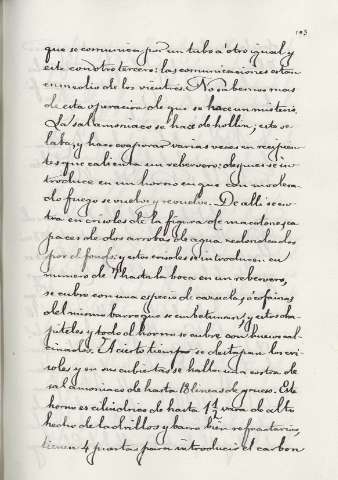 103
que se comunica por un tubo a otro igual y
este con otro tercero: las comunicaciones estan
en medio de los vientres. No sabemos mas
de esta operacion de que se hace un misterio.
La sal amoniaco se hace de hollin, este se
laba, y hace evaporar varias veces en recipien-
tes que calienta un rebervero: despues se in-
troduce en un horno en que con modera-
do fuego se vuelve y revuelve. De alli se en-
tra en crisoles de la figura de macetones ca
paces de dos arrobas de agua redondeados
por el fondo; y estos crisoles se introducen en
numero de 7 hasta la boca en un reberbero,
se cubre con una especie de cazuelas ó cofainas
del mismo barro que se embetunan, y estos cha-
piteles y todo el horno se cubre con huesos cal-
cinados. A cierto tiempo se destapan los cri
soles y en sus cubiertas se halla una costra de
sal amoniaco de hasta 18 lineas de grueso. Este
horno es cilindrico de hasta 1 1/2 vara de alto
hecho de ladrillos y barro bien refractarios,
tienen 4 puertas para introducir el carbon